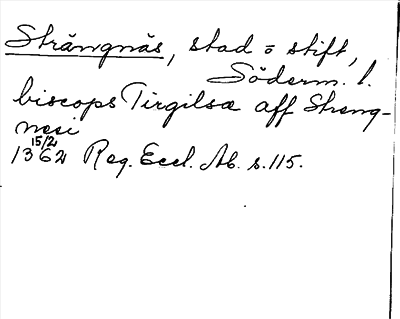 Strängnäs, stad o stift,
Söderm. l.
biscops Tirgilsa aff Streng-
nesi
15/2
1362 Reg. Eccl. Ab. s. 115.